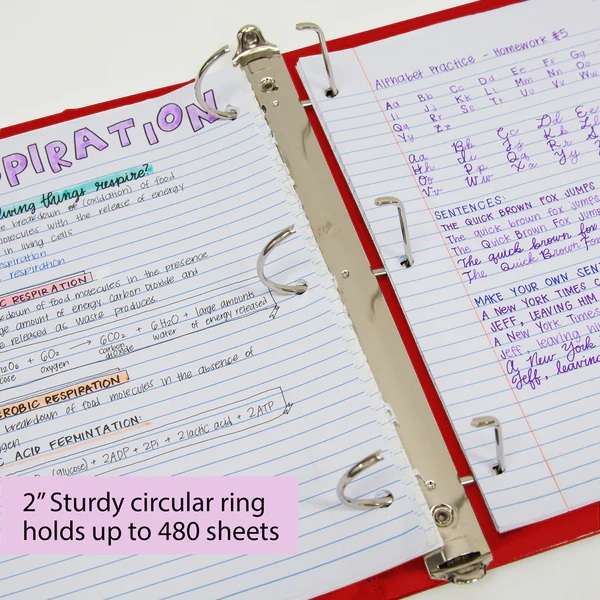 PIRATION
living things respire?
breakdown of (oxidation) of food
molecules with the release of energy
in living cells
respiration
respiration
C RESPIRATION
down of food molecules in the presence
large amount of energy. Carbon Dioxide and
e released as waste produces.
6O₂ → 6CO₂ + 6H₂O + large amounts
oxygen carbon dioxide water of energy released
EROBIC RESPIRATION
breakdown of food molecules in the absence of
gen
C ACID FERMINTATION:
(glucose) + 2ADP + 2Pi → 2 lactic acid + 2ATP
Alphabet Practice - Homework #5
Aa Bb Cc Dd Ee Ff Gg
Ii Jj Kk Ll Mm Nn
Qq Rr Ss Tt Uu Vv
Yy Zz
Aa Bb Cc Dd Ee
Hh Ii Jj Kk
Oo Pp Qq Rr
Vv Ww Xx
SENTENCES:
THE QUICK BROWN FOX JUMPS
The quick brown fox jumps
The Quick Brown Fox Jump
The quick brown fox
The Quick Brown Fo
MAKE YOUR OWN SENT
A NEW YORK TIMES C
JEFF, LEAVING HIM
A New York Times
Jeff, leaving hi
A New York
Jeff, leavin
2” Sturdy circular ring
holds up to 480 sheets